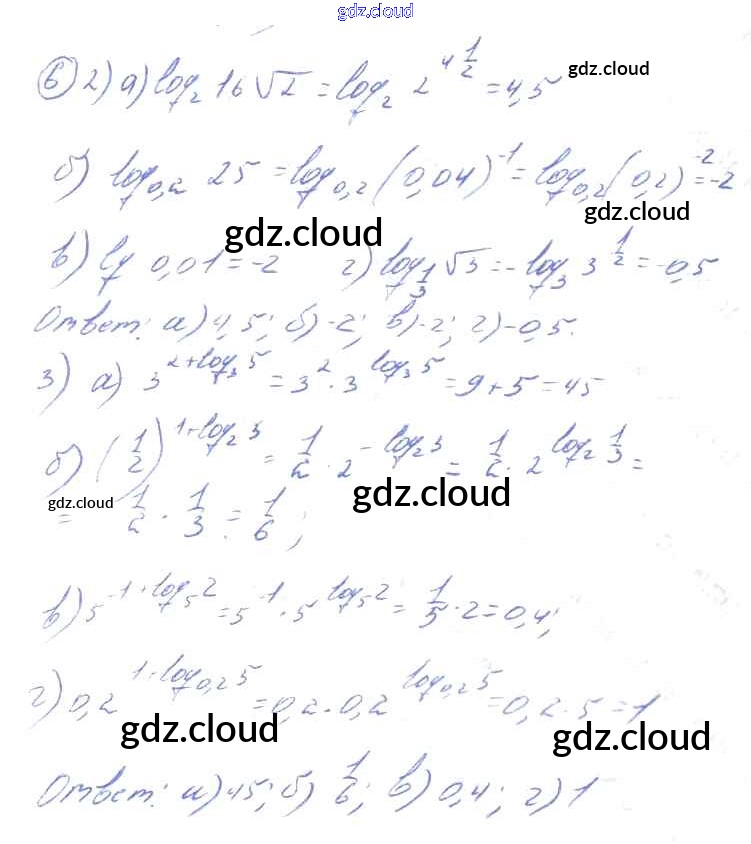 gdz.cloud
⑥ 2) а) log₂ 16√2 = log₂ 2^(4 1/2) = 4,5
gdz.cloud
б) log₀,₂ 25 = log₀,₂ (0,04)⁻¹ = log₀,₂ (0,2)⁻² = -2
gdz.cloud
gdz.cloud
в) lg 0,01 = -2 г) log_(1/3) √3 = -log₃ 3^(1/2) = -0,5
Ответ: а) 4,5; б) -2; в) -2; г) -0,5.
3) а) 3^(2+log₃ 5) = 3² · 3^(log₃ 5) = 9 + 5 = 45
б) (1/2)^(1+log₂ 3) = 1/2 · 2^(-log₂ 3) = 1/2 · 2^(log₂ 1/3) =
gdz.cloud
gdz.cloud
= 1/2 · 1/3 = 1/6;
в) 5^(-1+log₅ 2) = 5⁻¹ · 5^(log₅ 2) = 1/5 · 2 = 0,4;
г) 0,2^(1+log₀,₂ 5) = 0,2 · 0,2^(log₀,₂ 5) = 0,2 · 5 = 1
gdz.cloud
gdz.cloud
Ответ: а) 45; б) 1/6; в) 0,4; г) 1